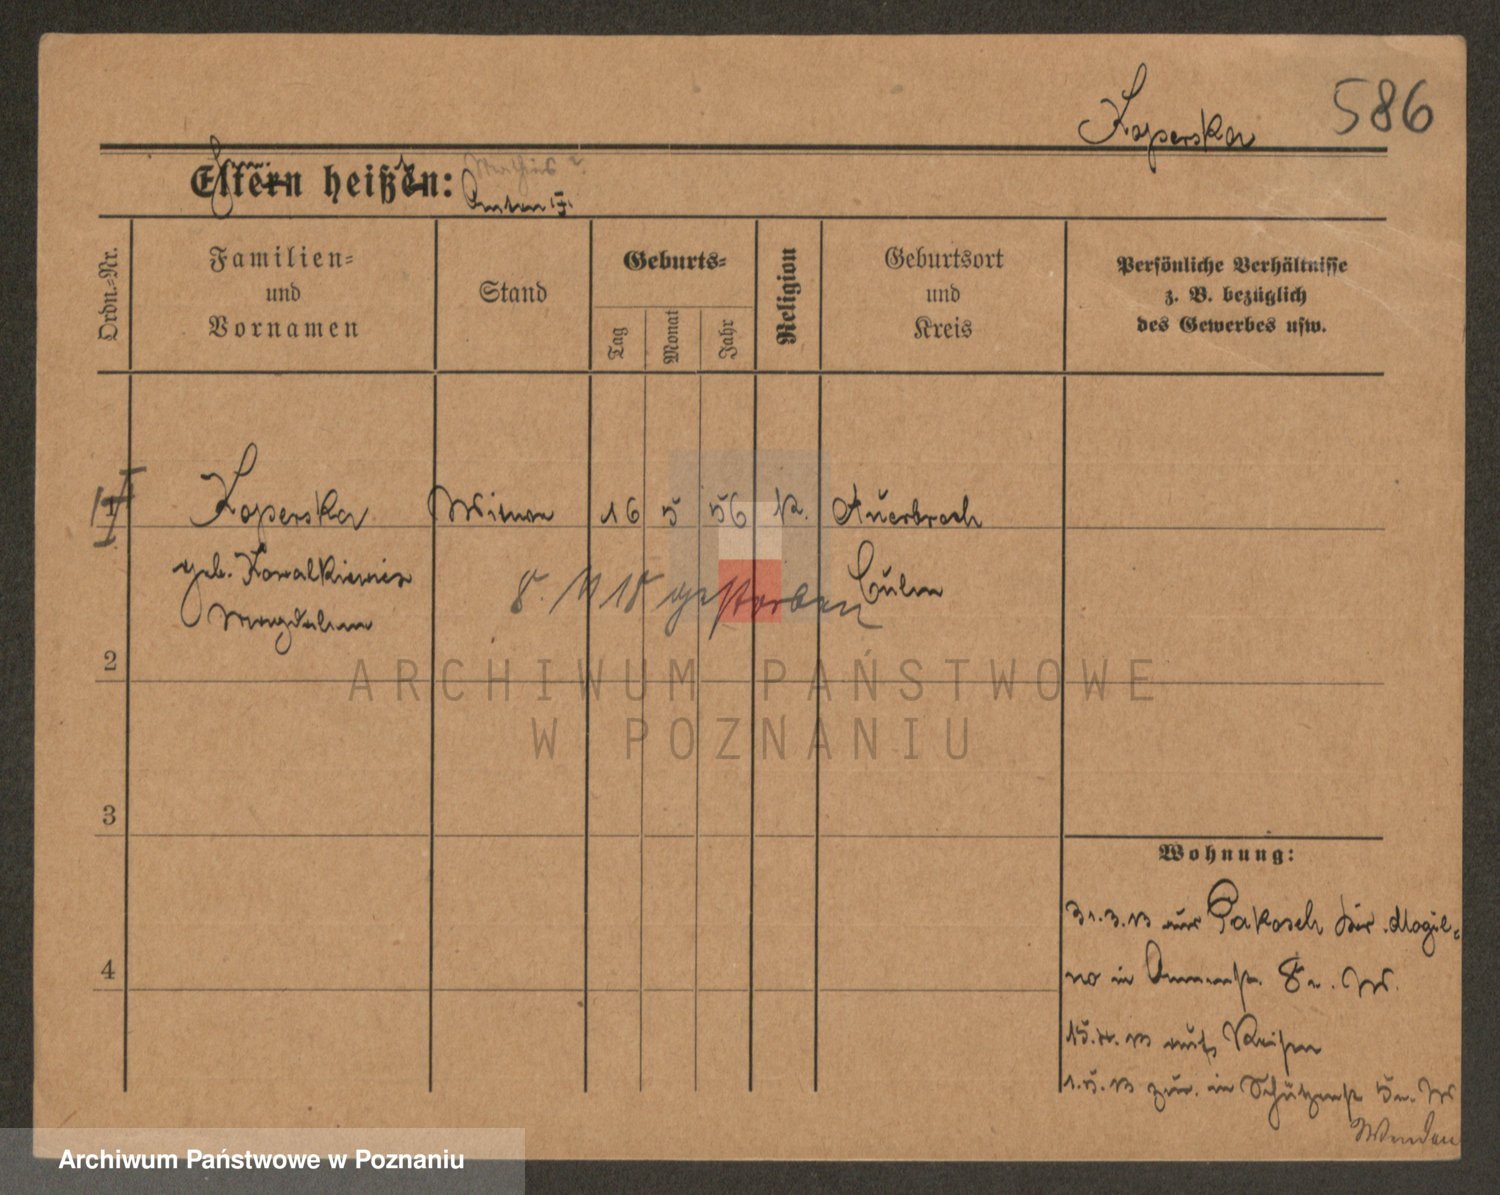 Koperska 586
Eltern heißen:
Anton †.
Ordn.-Nr.
Familien=
und
Vornamen
Stand
Geburts=
Tag
Monat
Jahr
Religion
Geburtsort
und
Kreis
Persönliche Verhältnisse
z. B. bezüglich
des Gewerbes usw.
1 Koperska Witwe 16 5 56 k. Auerbach
geb. Kowalkiewicz Culm
8. 11 18 gestorben
Magdalena
2
3
4
Wohnung:
31.3.13 aus Pakosch Kr. Mogil=
no in Annenstr. 8 II. W.
15.4.13 auf Reisen
1.5.13 zur. in Schützenstr. 5 W
Wenden
ARCHIWUM PAŃSTWOWE
W POZNANIU
Archiwum Państwowe w Poznaniu